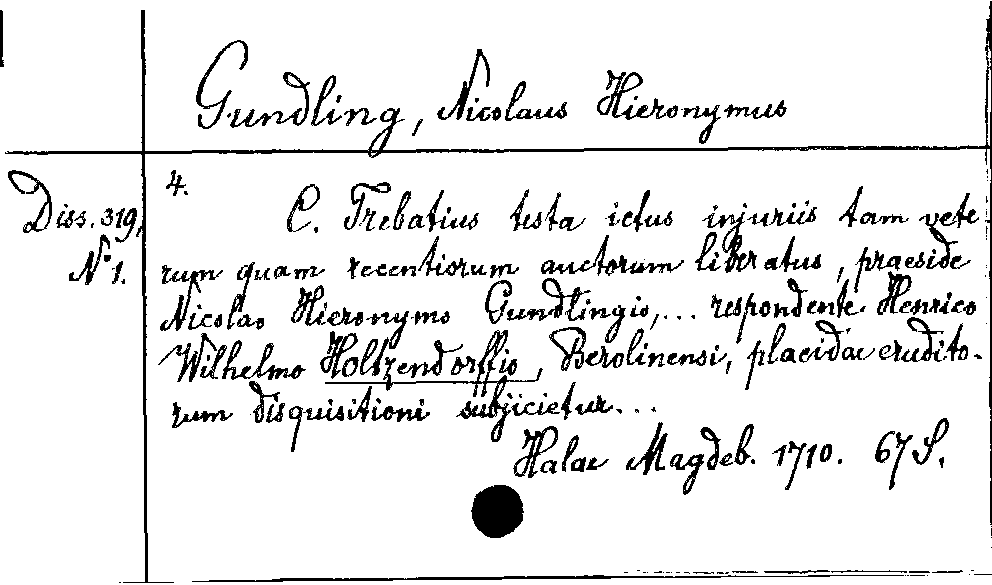 Gundling, Nicolaus Hieronymus
Diss. 319,
No 1.
4.
C. Trebatius testa ictus injuriis tam vete-
rum quam recentiorum auctorum liberatus, praeside
Nicolao Hieronymo Gundlingio,... respondente Henrico
Wilhelmo Holtzendorffio, Berolinensi, placidae erudito-
rum disquisitioni subjicietur...
Halae Magdeb. 1710. 67 S.